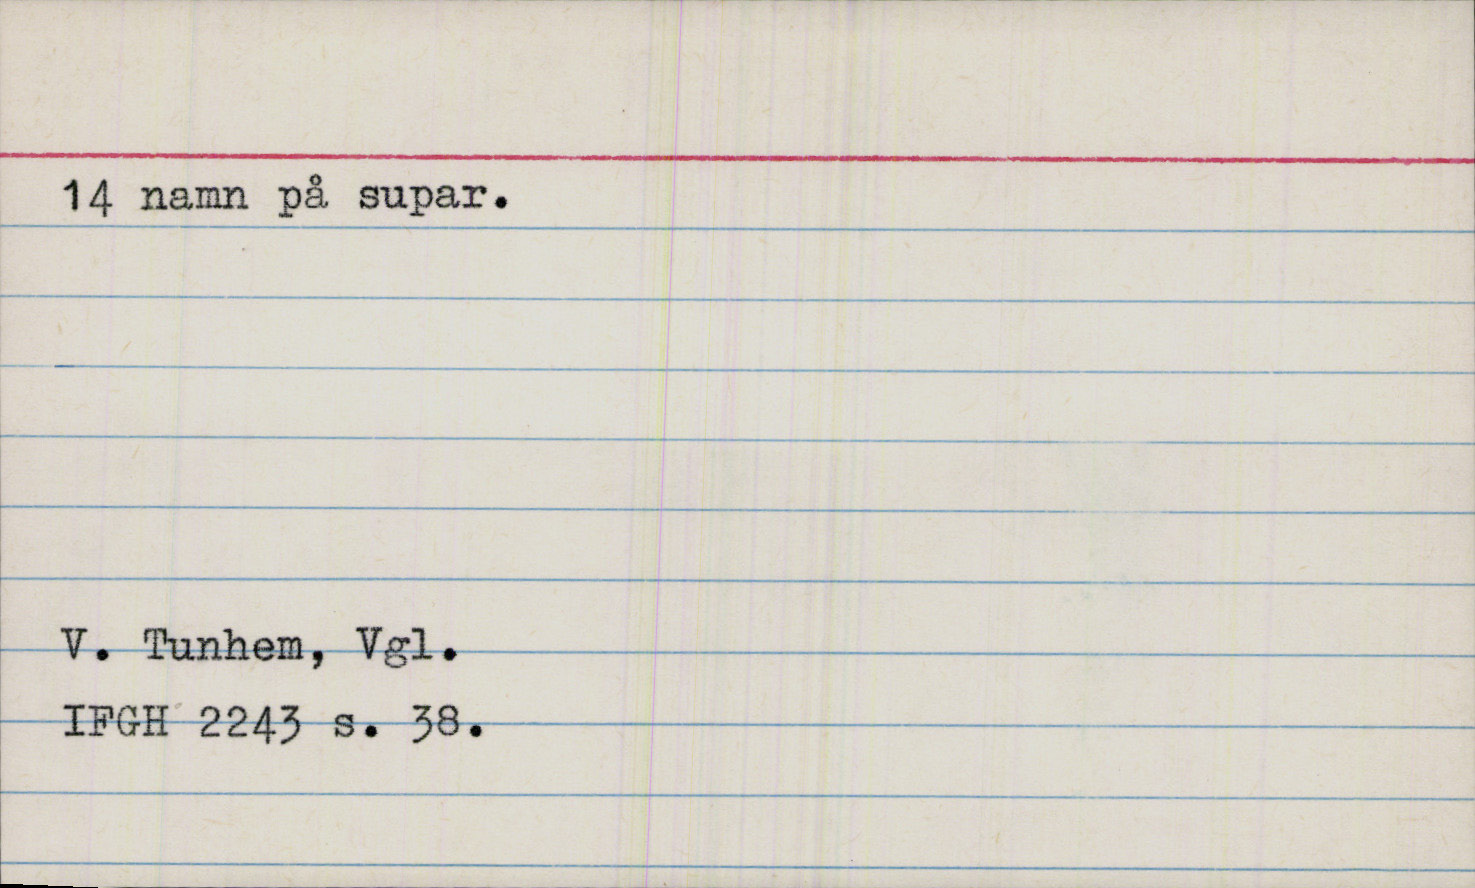 14 namn på supar.
V. Tunhem, Vgl.
IFGH 2243 s. 38.